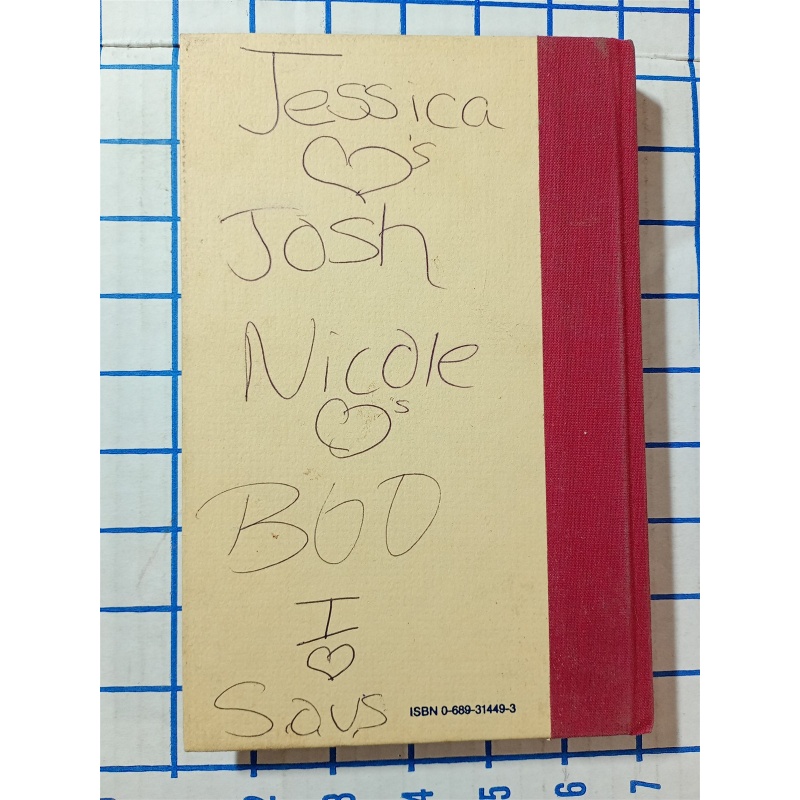 Jessica
♡'s
Josh
Nicole
♡'s
BOO
I
♡
Savs
ISBN 0-689-31449-3
2 3 4 5 6 7